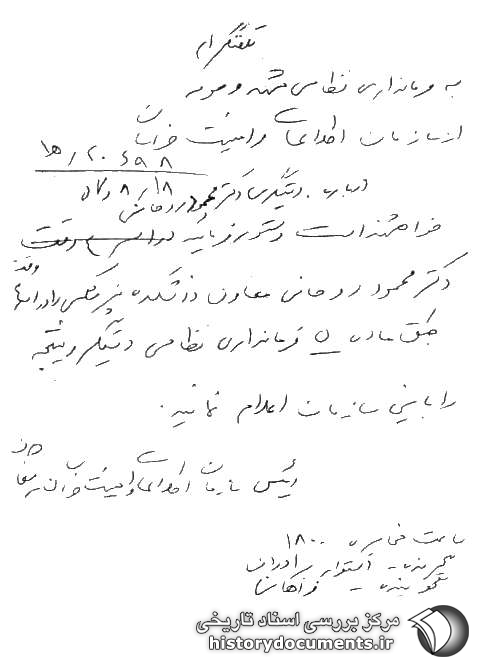 تلفنگرام
به فرمانداری نظامی مشهد و حومه
از سازمان اطلاعات و امنیت خراسان
۲۰۶۹۸ / ۱ه‍
۵۷/۸/۱۸
درباره دستگیری دکتر محمود روحانی
خواهشمند است دستور فرمائید
دکتر محمود روحانی معاون دانشکده پزشکی را در اسرع وقت
طبق ماده ۵ فرمانداری نظامی دستگیر و نتیجه
را باین سازمان اعلام نمائید.
رئیس سازمان اطلاعات و امنیت خراسان
ساعت مخابره ۱۸۰۰
گیرنده - استوار برادران
گوینده -
مرکز بررسی اسناد تاریخی
historydocuments.ir